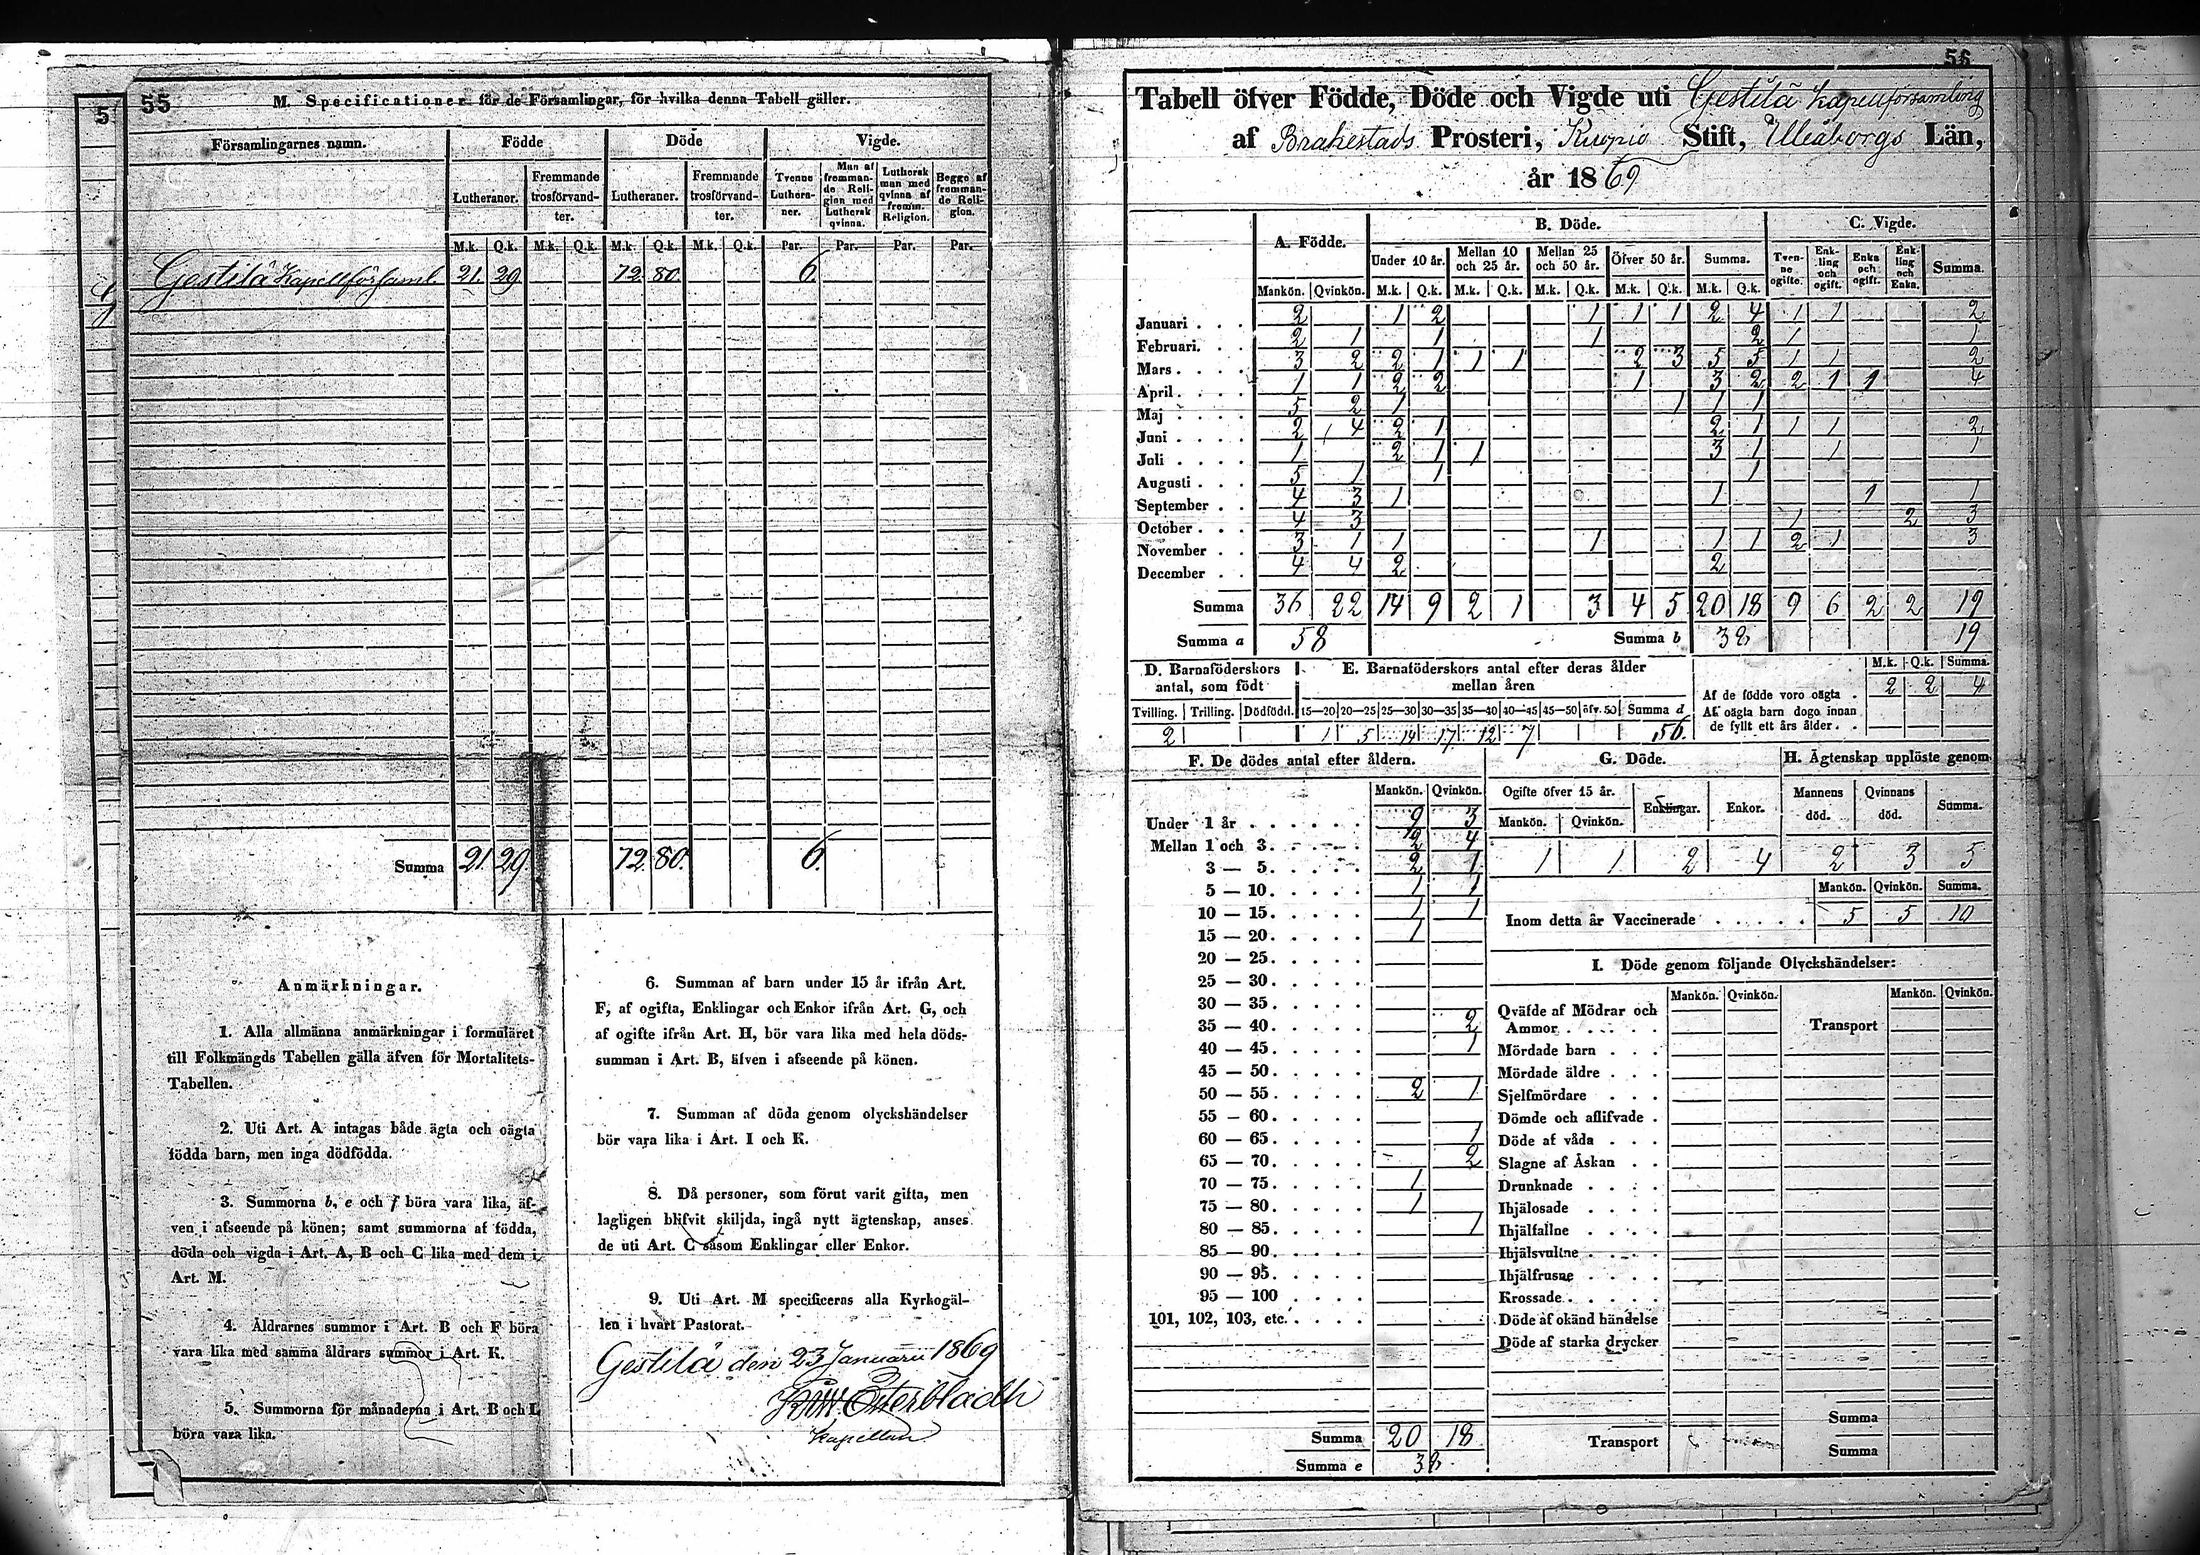 55
M. Specificationer för de Församlingar, för hvilka denna Tabell gäller.
Församlingarnes namn. Födde Döde Vigde.
Lutheraner. Fremmande trosförvandter. Lutheraner. Fremmande trosförvandter. Tvenne Lutheraner. Man af fremmande Religion med Luthersk qvinna. Luthersk man med qvinna af fremm. Religion. Begge af fremmande Religion.
M.k. Q.k. M.k. Q.k. M.k. Q.k. M.k. Q.k. Par. Par. Par. Par.
Gestilä Kapellförsaml. 21. 29 72. 80. 6.
Summa 21. 29. 72. 80. 6.
Anmärkningar.
1. Alla allmänna anmärkningar i formuläret
till Folkmängds Tabellen gälla äfven för Mortalitets-
Tabellen.
2. Uti Art. A intagas både ägta och oägta
födda barn, men inga dödfödda.
3. Summorna b, e och f böra vara lika, äf-
ven i afseende på könen; samt summorna af födda,
döda och vigda i Art. A, B och C lika med dem i
Art. M.
4. Åldrarnes summor i Art. B och F böra
vara lika med samma åldrars summor i Art. K.
5. Summorna för månaderna i Art. B och L
böra vara lika.
6. Summan af barn under 15 år ifrån Art.
F, af ogifta, Enklingar och Enkor ifrån Art. G, och
af ogifte ifrån Art. H, bör vara lika med hela döds-
summan i Art. B, äfven i afseende på könen.
7. Summan af döda genom olyckshändelser
bör vara lika i Art. I och K.
8. Då personer, som förut varit gifta, men
lagligen blifvit skiljda, ingå nytt ägtenskap, anses
de uti Art. C såsom Enklingar eller Enkor.
9. Uti Art. M specificeras alla Kyrkogäl-
len i hvart Pastorat.
Gestilä den 23 Januarii 1869
Österbladh
Kapellan
56
Tabell öfver Födde, Döde och Vigde uti Gestilä Kapellförsamling
af Brahestads Prosteri, Kuopio Stift, Uleåborgs Län,
år 1869
A. Födde. B. Döde. C. Vigde.
Under 10 år. Mellan 10 och 25 år. Mellan 25 och 50 år. Öfver 50 år. Summa. Tvenne ogifte. Enkling och ogift. Enka och ogift. Enkling och Enka. Summa.
Mankön. Qvinkön. M.k. Q.k. M.k. Q.k. M.k. Q.k. M.k. Q.k. M.k. Q.k.
Januari . . . 2 1 2 1 1 1 2 4 1 1 2
Februari. . . 2 1 1 1 2 1 1
Mars . . . . 3 2 2 1 1 1 2 3 5 5 1 1 2
April . . . . 1 1 2 2 1 3 2 2 1 1 4
Maj . . . . 5 2 1 1 1 1
Juni . . . . 2 4 2 1 2 1 1 1 2
Juli . . . . 1 2 1 1 3 1 1 1
Augusti . . . 5 1 1 1
September . . 4 3 1 1 1 1
October . . . 4 3 1 2 3
November . . 3 1 1 1 1 1 2 1 3
December . . 4 4 2 2
Summa 36 22 14 9 2 1 3 4 5 20 18 9 6 2 2 19
Summa a 58 Summa b 38 19
D. Barnaföderskors antal, som födt
Tvilling. Trilling. Dödfödd.
2
E. Barnaföderskors antal efter deras ålder
mellan åren
15—20 20—25 25—30 30—35 35—40 40—45 45—50 öfv. 50 Summa d
1 5 14 17 12 7 56.
M.k. Q.k. Summa.
Af de födde voro oägta . 2 2 4
Af oägta barn dogo innan
de fyllt ett års ålder. . .
F. De dödes antal efter åldern.
Mankön. Qvinkön.
Under 1 år . . . . . . 9 3
Mellan 1 och 3. . . . . 2 4
3 — 5. . . . . 2 1
5 — 10. . . . . 1 1
10 — 15. . . . . 1 1
15 — 20. . . . . 1
20 — 25. . . . .
25 — 30. . . . .
30 — 35. . . . .
35 — 40. . . . . 2
40 — 45. . . . . 1
45 — 50. . . . .
50 — 55. . . . . 2 1
55 — 60. . . . .
60 — 65. . . . . 1
65 — 70. . . . . 2
70 — 75. . . . . 1
75 — 80. . . . . 1
80 — 85. . . . . 1
85 — 90. . . . .
90 — 95. . . . .
95 — 100 . . . .
101, 102, 103, etc. . . . .
Summa 20 18
Summa e 38
G. Döde.
Ogifte öfver 15 år. Enklingar. Enkor.
Mankön. Qvinkön.
1 1 2 4
H. Ägtenskap upplöste genom
Mannens död. Qvinnans död. Summa.
2 3 5
Mankön. Qvinkön. Summa.
Inom detta år Vaccinerade . . . . . 5 5 10
I. Döde genom följande Olyckshändelser:
Mankön. Qvinkön. Mankön. Qvinkön.
Qväfde af Mödrar och
Ammor . . . . . Transport
Mördade barn . . .
Mördade äldre . . .
Sjelfmördare . . .
Dömde och aflifvade .
Döde af våda . . .
Slagne af Åskan . .
Drunknade . . . .
Ihjälosade . . . .
Ihjälfallne . . . .
Ihjälsvultne . . . .
Ihjälfrusne . . . .
Krossade . . . . .
Döde af okänd händelse
Döde af starka drycker
Summa
Transport Summa